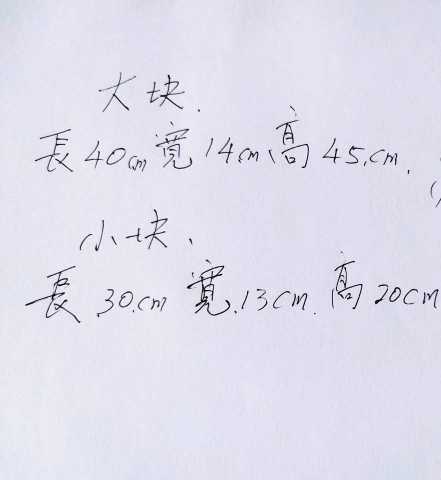 大块.
長40cm寬14cm、高45.cm.
小块、
長30.cm寬.13cm.高20cm